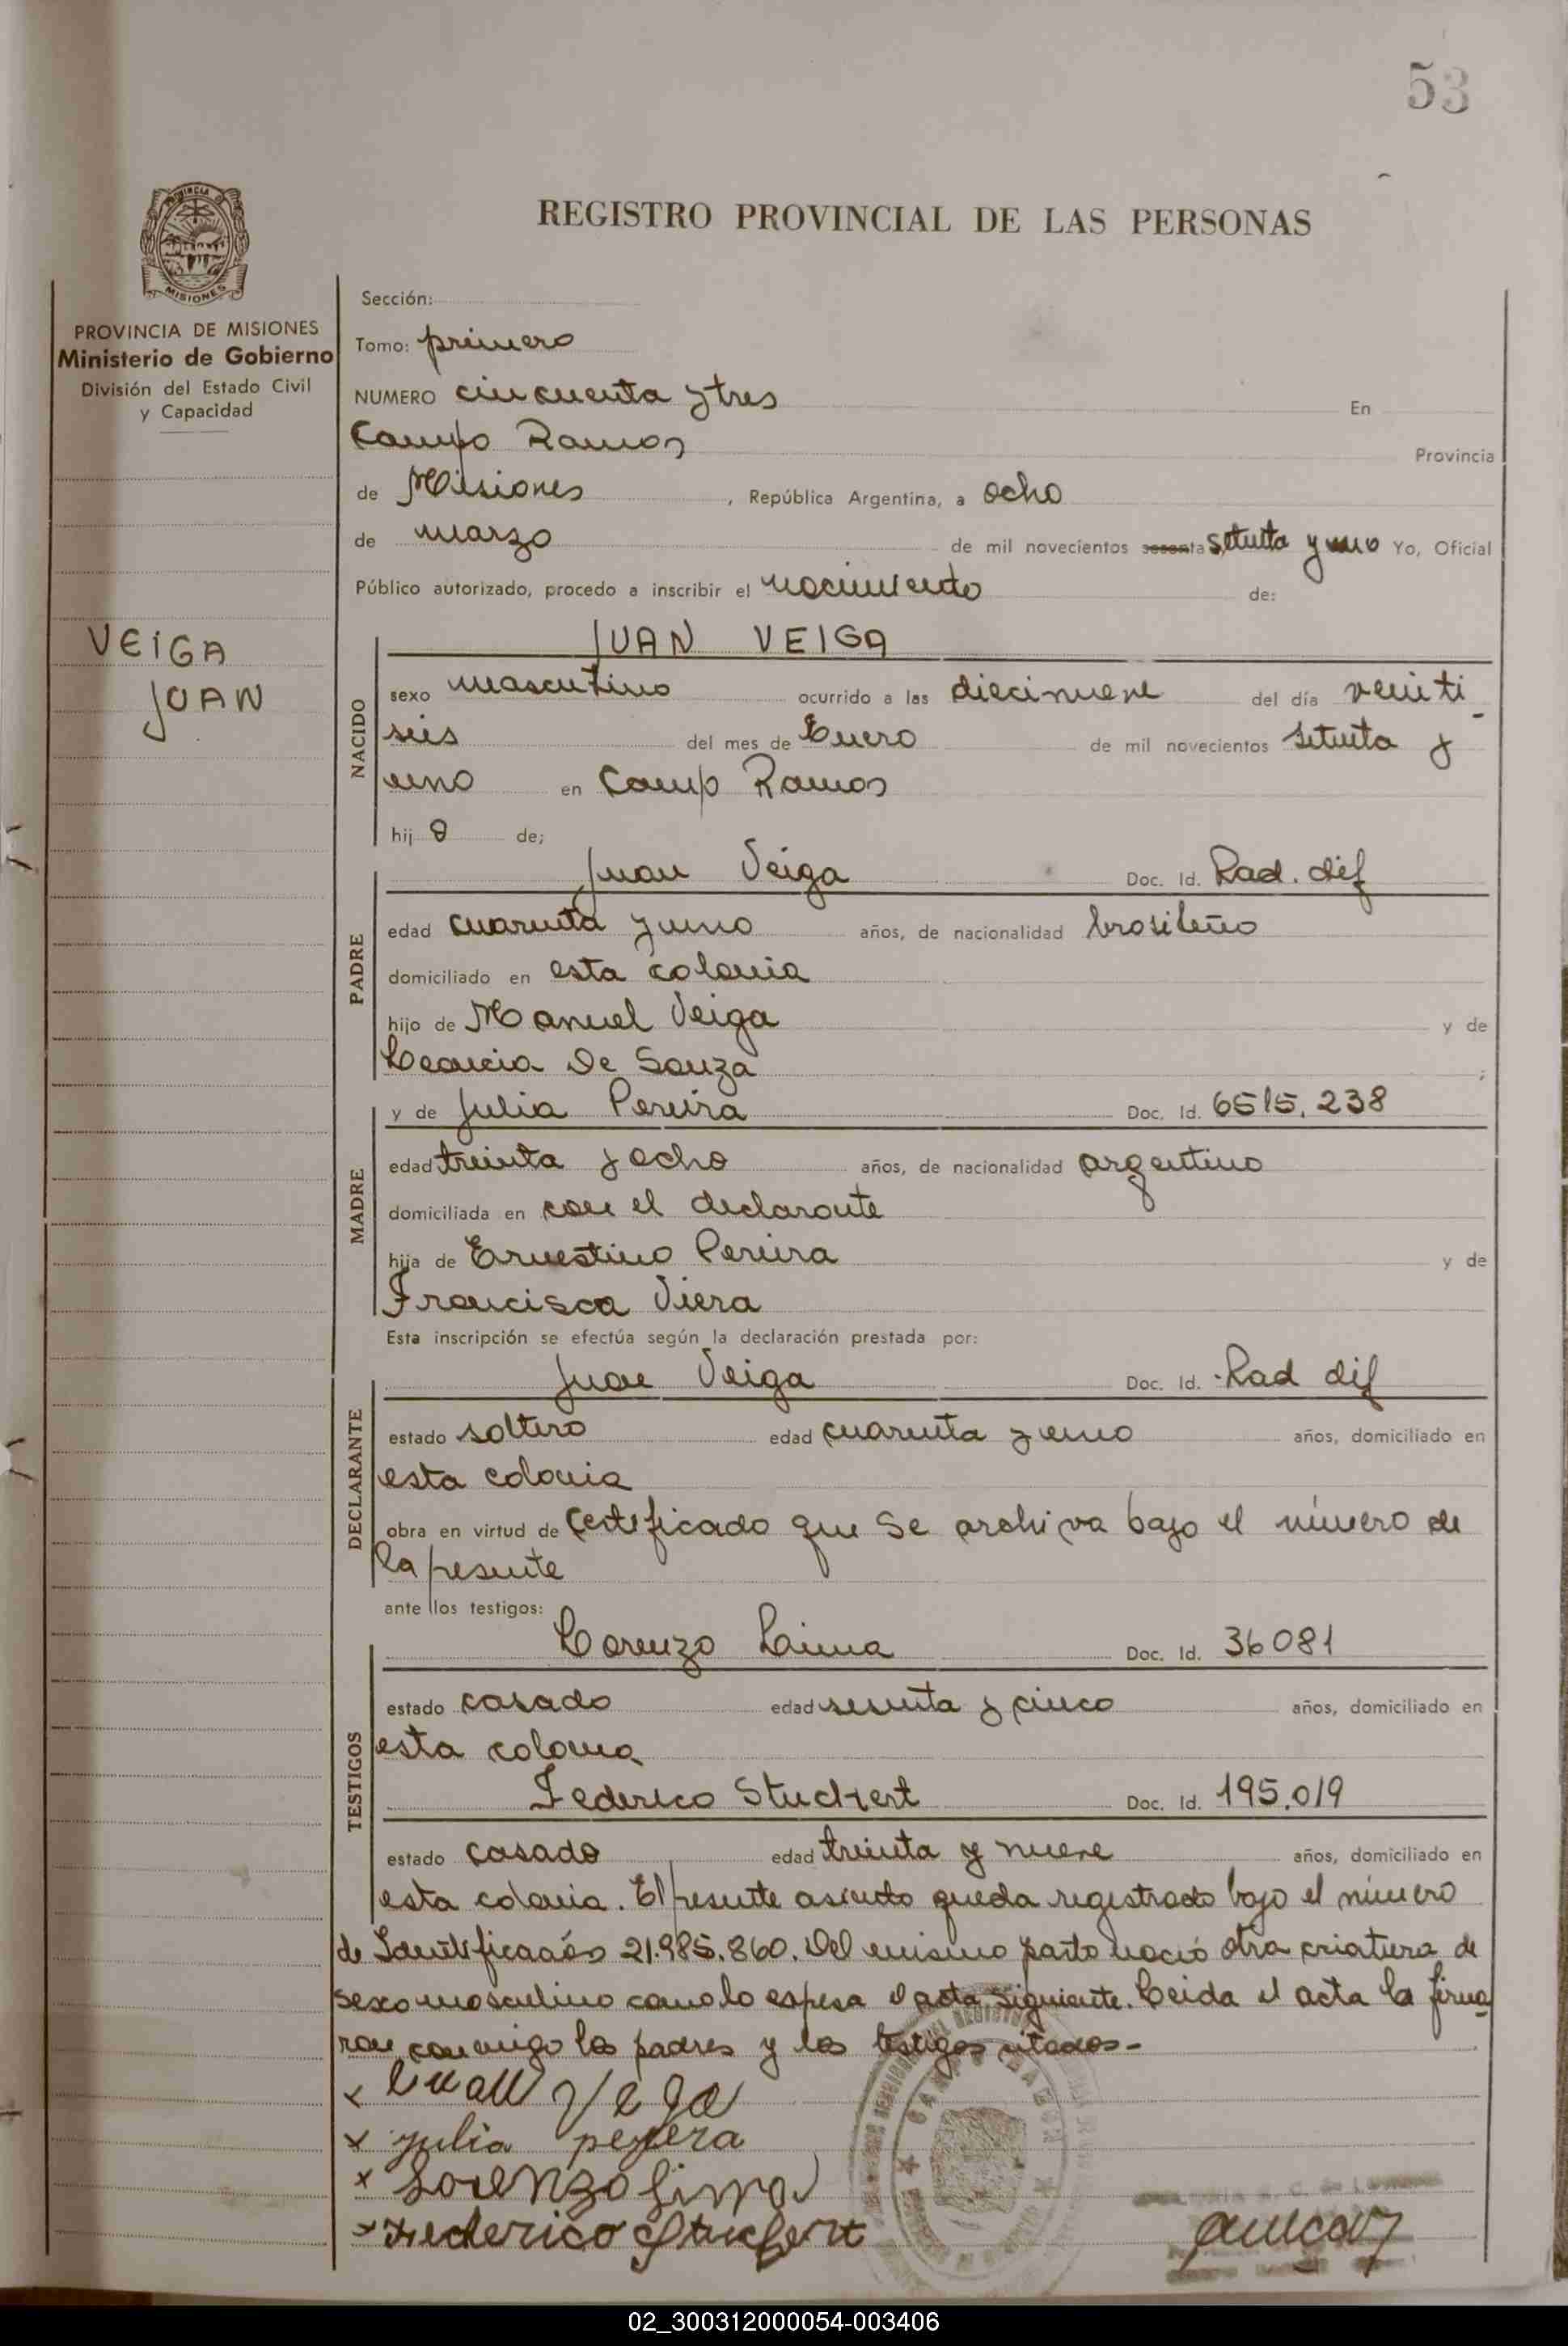 53
REGISTRO PROVINCIAL DE LAS PERSONAS
PROVINCIA DE MISIONES
Ministerio de Gobierno
División del Estado Civil
y Capacidad
VEIGA
JUAN
Sección:
Tomo: primero
NUMERO cincuenta y tres En
Campo Ramon Provincia
de Misiones , República Argentina, a ocho
de marzo de mil novecientos sesenta setenta y uno Yo, Oficial
Público autorizado, procedo a inscribir el nacimiento de:
NACIDO
JUAN VEIGA
sexo masculino ocurrido a las diecinueve del día veinti
seis del mes de Enero de mil novecientos setenta y
uno en Camp Ramon
hij o de;
PADRE
Juan Veiga Doc. Id. Rad. dif
edad cuarenta y uno años, de nacionalidad brasileño
domiciliado en esta colonia
hijo de Manuel Veiga y de
De Souza ;
MADRE
y de Julia Pereira Doc. Id. 6515.238
edad treinta y ocho años, de nacionalidad argentino
domiciliada en con el declarante
hija de Ernestino Pereira y de
Francisca Viera
Esta inscripción se efectúa según la declaración prestada por:
DECLARANTE
Juan Veiga Doc. Id. Rad dif
estado soltero edad cuarenta y uno años, domiciliado en
esta colonia
obra en virtud de certificado que se archiva bajo el número de
la presente
ante los testigos:
TESTIGOS
Lorenzo Lima Doc. Id. 36081
estado casado edad sesenta y cinco años, domiciliado en
esta colonia
Federico Stuckert Doc. Id. 195.019
estado casado edad treinta y nueve años, domiciliado en
esta colonia. El presente asiento queda registrado bajo el número
de Identificación 21.985.860. Del mismo parto nació otra criatura de
sexo masculino como lo espresa el acta siguiente. Leida el acta la firma
ron conmigo los padres y los testigos citados.-
x Juan Vega
x julia pereera
x Lorenzo Lima
x Federico Stuckert
02_300312000054-003406